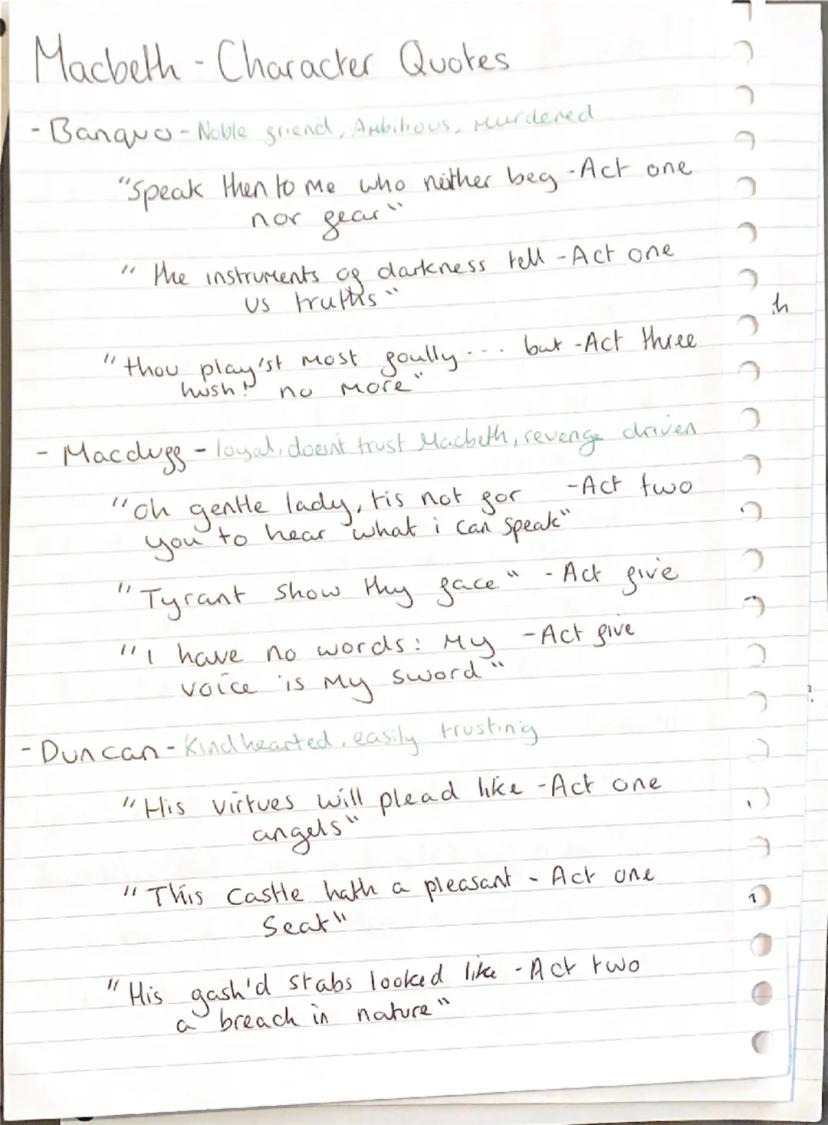 Macbeth - Character Quotes
- Banquo - Noble friend, Ambitious, murdered
"Speak then to me who neither beg - Act one
nor fear"
"the instruments of darkness tell - Act one
us truths"
"thou play'st most foully... but - Act three
hush! no more"
- Macduff - loyal, doesn't trust Macbeth, revenge driven
"Oh gentle lady, tis not for - Act two
you to hear what i can speak"
"Tyrant show thy face" - Act five
"I have no words: My - Act five
voice is my sword"
- Duncan - Kindhearted, easily trusting
"His virtues will plead like - Act one
angels"
"This Castle hath a pleasant - Act one
Seat"
"His gash'd stabs looked like - Act two
a breach in nature"